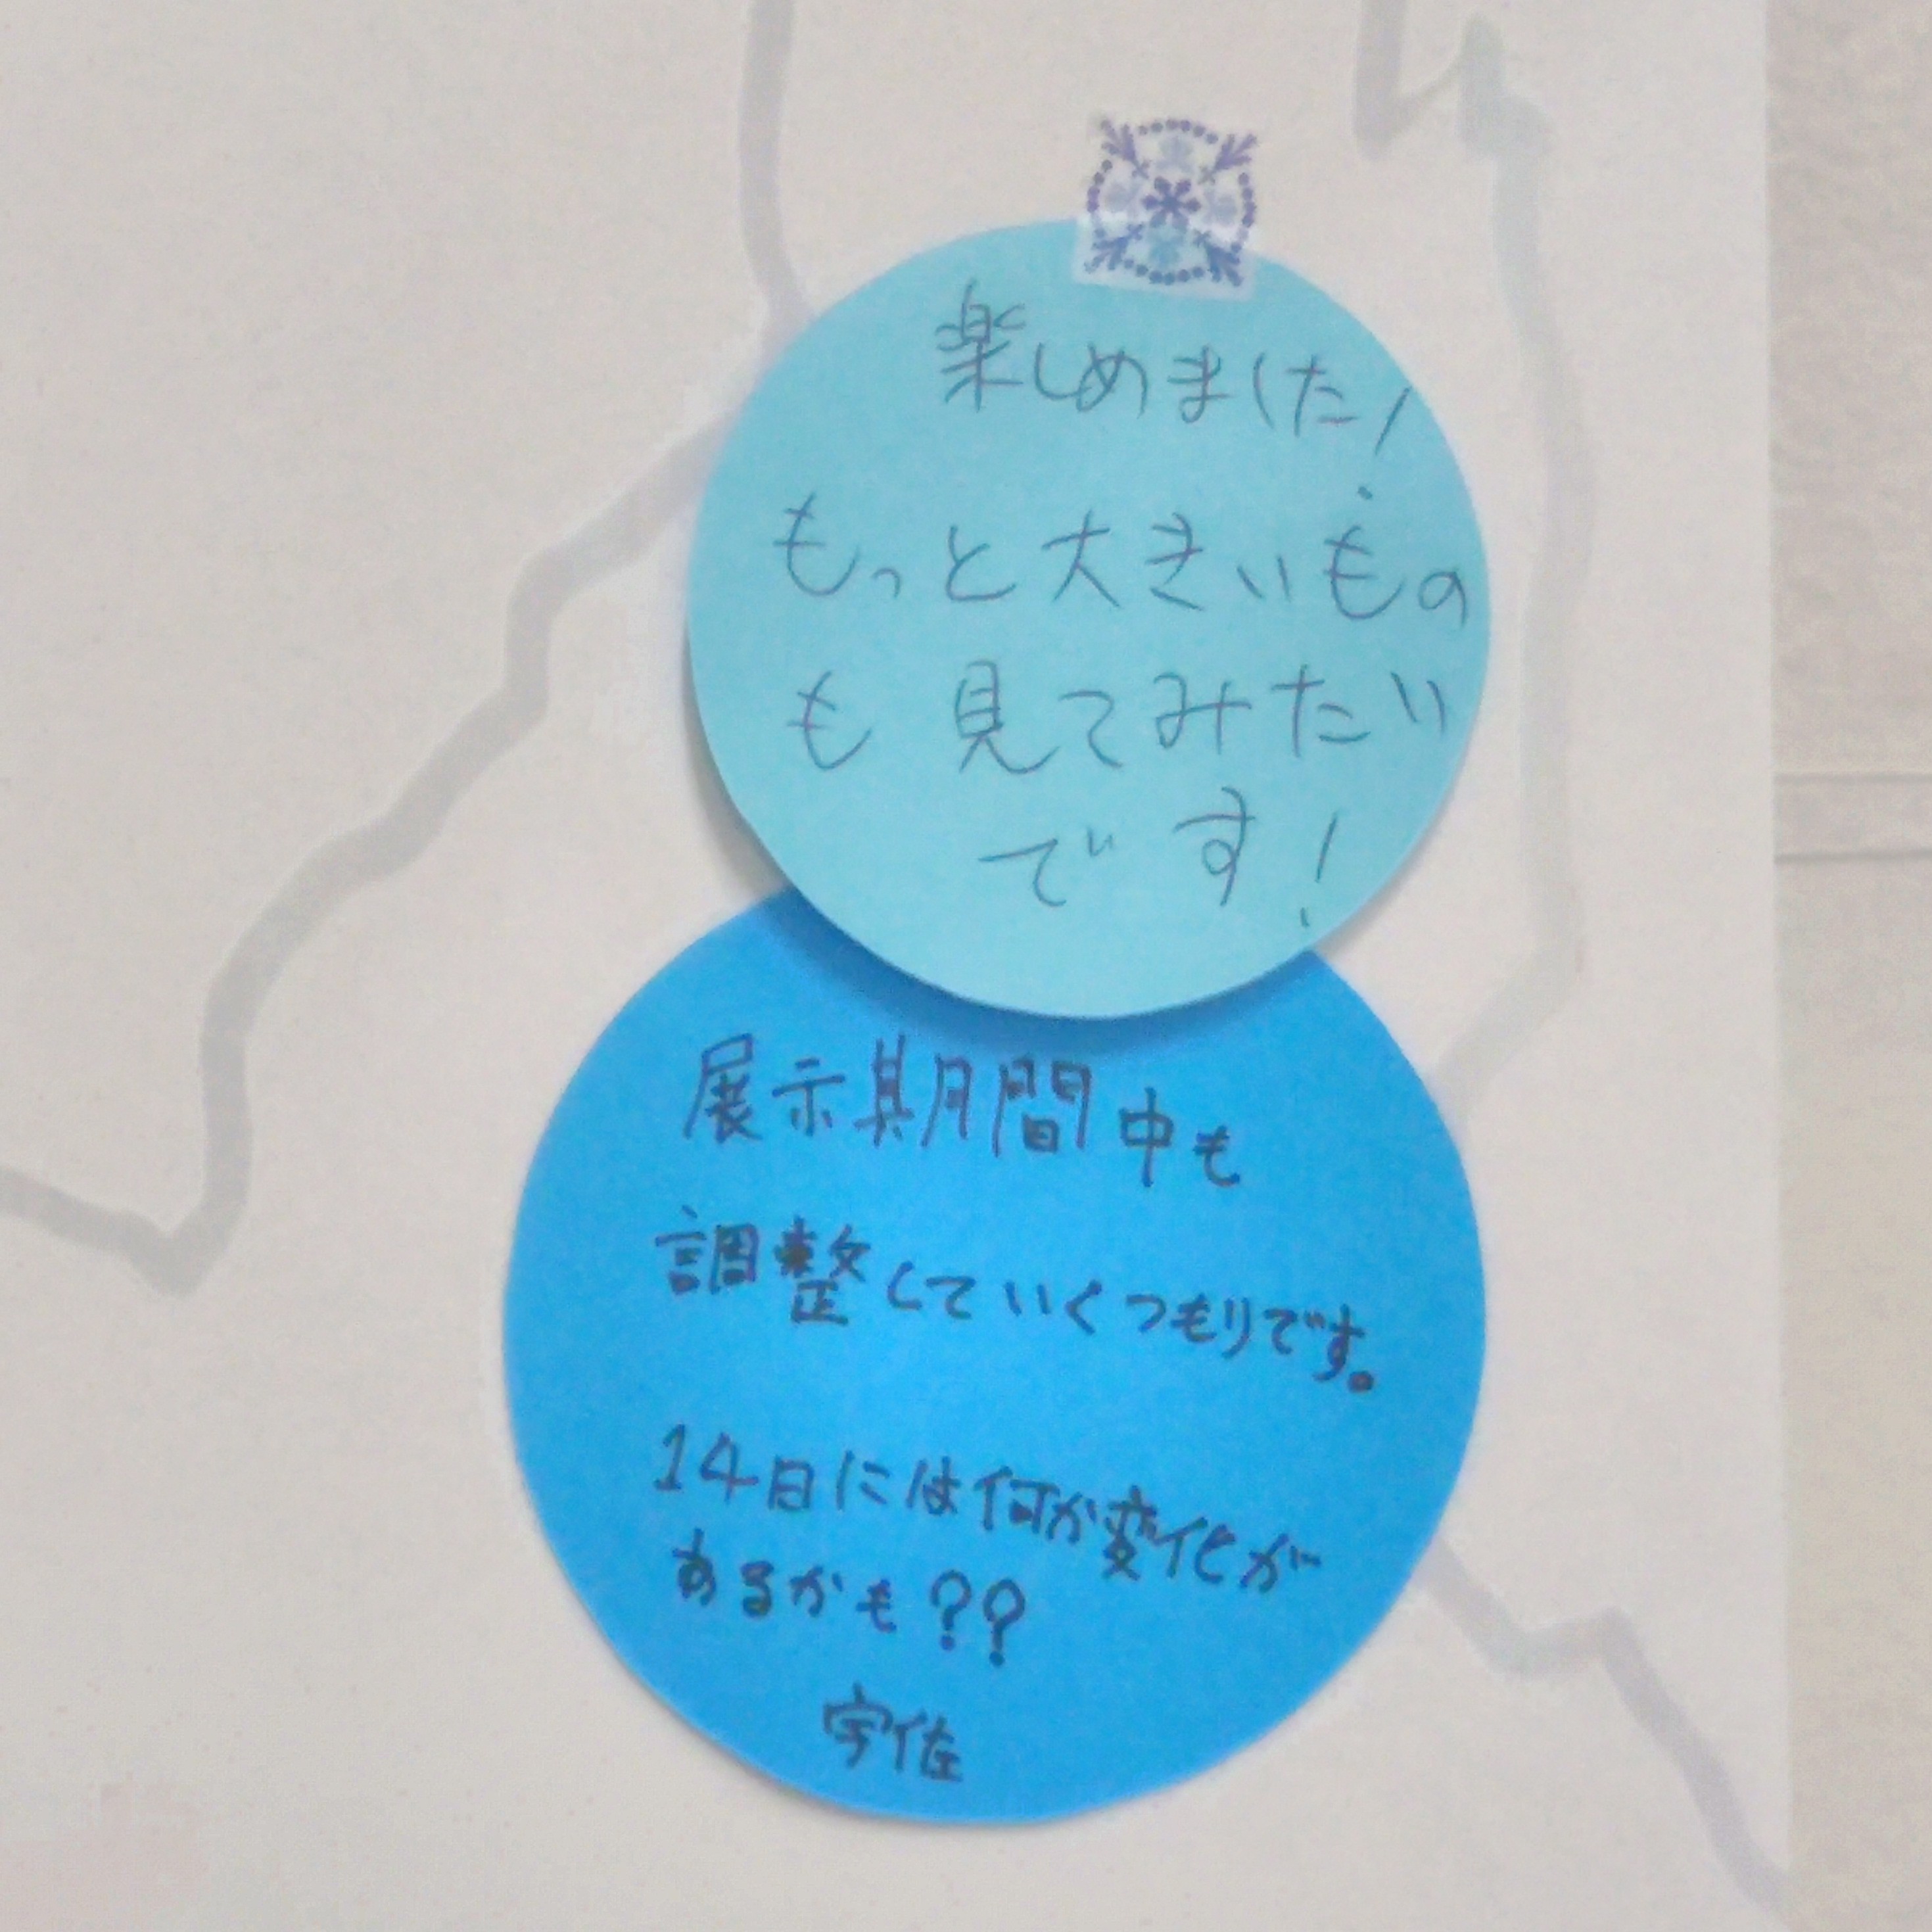 楽しめました!
もっと大きいもの
も見てみたい
です!
展示期間中も
調整していくつもりです。
14日には何か変化が
あるかも??
宇佐